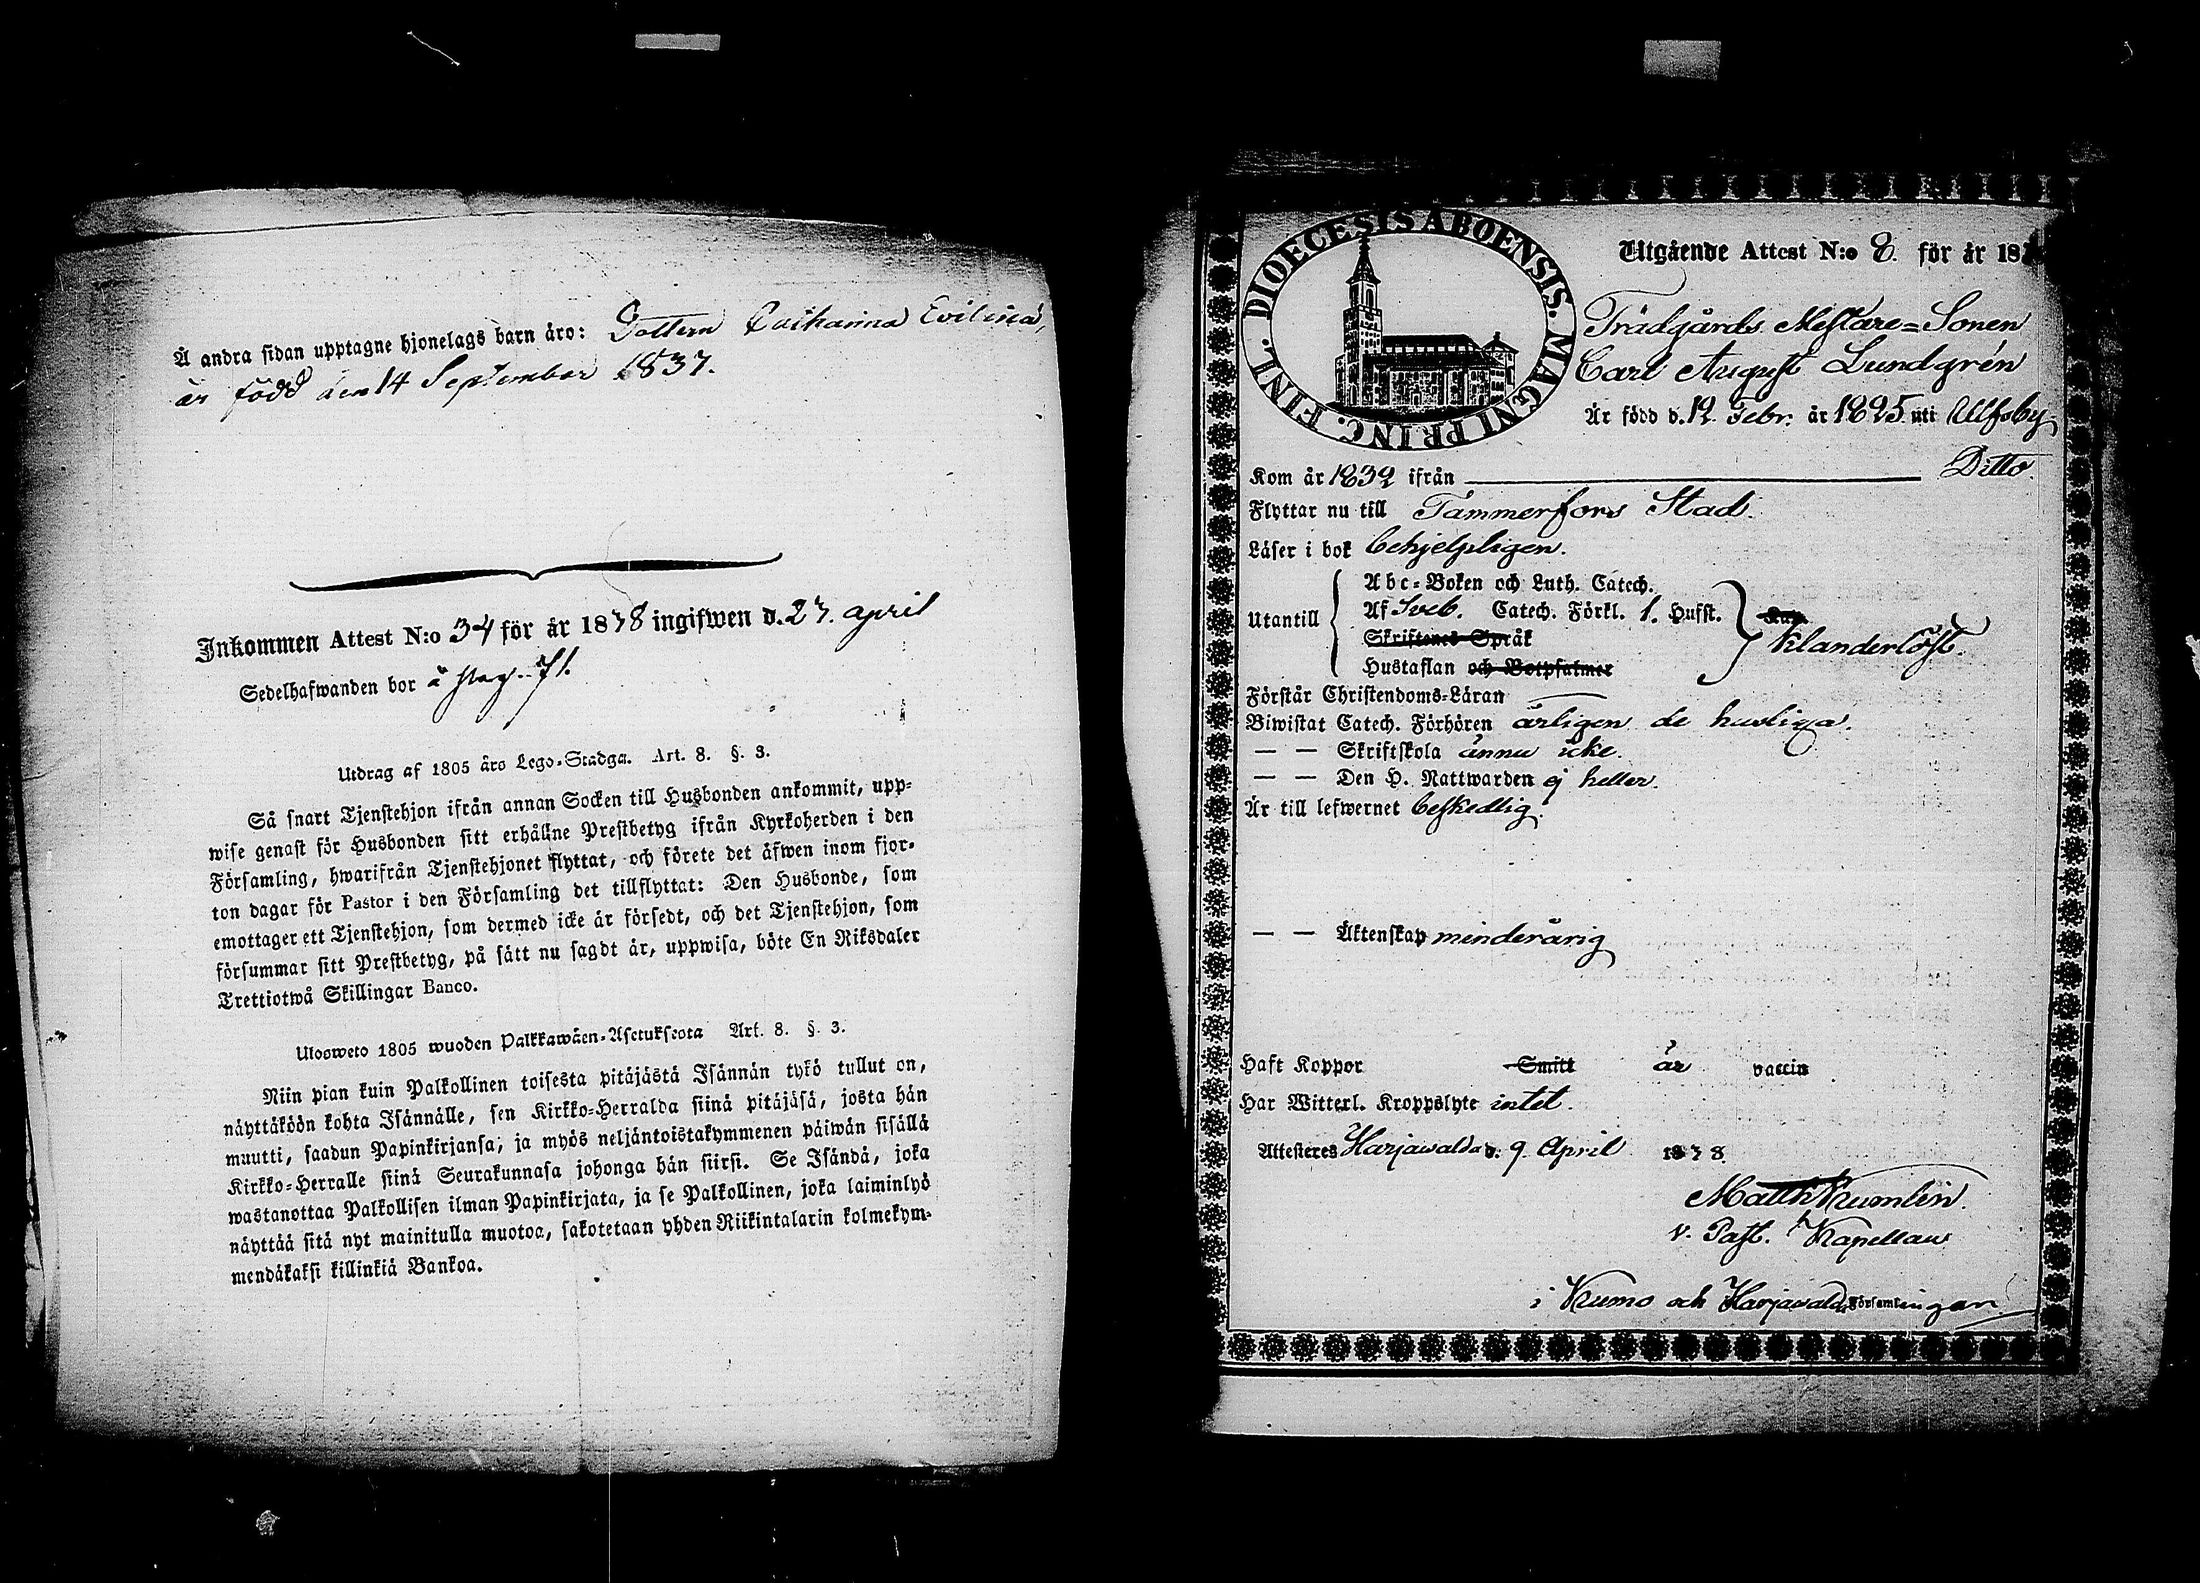 Å andra sidan upptagne hjonelags barn äro: Dottern Catharina Evilina,
är född den 14 September 1837.
Inkommen Attest N:o 34 för år 1838 ingifwen d. 27. april
Sedelhafwanden bor å pag. 71.
Utdrag af 1805 års Lego-Stadga. Art. 8. §. 3.
Så snart Tjenstehjon ifrån annan Socken till Husbonden ankommit, upp-
wise genast för Husbonden sitt erhållne Prestbetyg ifrån Kyrkoherden i den
Församling, hwarifrån Tjenstehjonet flyttat, och förete det äfwen inom fjor-
ton dagar för Pastor i den Församling det tillflyttat: Den Husbonde, som
emottager ett Tjenstehjon, som dermed icke är försedt, och det Tjenstehjon, som
försummar sitt Prestbetyg, på sätt nu sagdt är, uppwisa, böte En Riksdaler
Trettiotwå Skillingar Banco.
Ulosweto 1805 wuoden Palkkawäen-Asetuksesta Art. 8. §. 3.
Niin pian kuin Palkollinen toisesta pitäjästä Isännän tykö tullut on,
näyttäköön kohta Isännälle, sen Kirkko-Herralda siinä pitäjäsä, josta hän
muutti, saadun Papinkirjansa, ja myös neljäntoistakymmenen päiwän sisällä
Kirkko-Herralle siinä Seurakunnasa johonga hän siirsi. Se Isändä, joka
wastanottaa Palkollisen ilman Papinkirjata, ja se Palkollinen, joka laiminlyö
näyttää sitä nyt mainitulla muotoa, sakotetaan yhden Riikintalarin kolmekym-
mendäkaksi killinkiä Bankoa.
DIOECESIS ABOENSIS. MAGNI PRINC. FINL.
Utgående Attest N:o 8. för år 18
Trädgårds Mestare-Sonen
Carl August Lundgrén
Är född d. 12 Febr. år 1825 uti Ulfsby
Kom år 1832 ifrån Ditto.
Flyttar nu till Tammerfors Stad.
Läser i bok behjelpligen.
Utantill
Abc-Boken och Luth. Catech.
Af Sveb. Catech. Förkl. 1. Hufst.
Skriftenes Språk
Hustaflan och Botpsalmer
Klanderlöst.
Förstår Christendoms-Läran
Biwistat Catech. Förhören årligen de husliga.
— — Skriftskola ännu icke.
— — Den H. Nattwarden ej heller.
Är till lefwernet beskedlig.
— — Äktenskap minderårig
Haft Koppor Smitt är vaccin
Har Witterl. Kroppslyte intet.
Attesteres Harjawalda d. 9 April 1838.
Matth Krumlin.
v. Past. Kapellan
i Kumo och Harjawalda Församlingar.